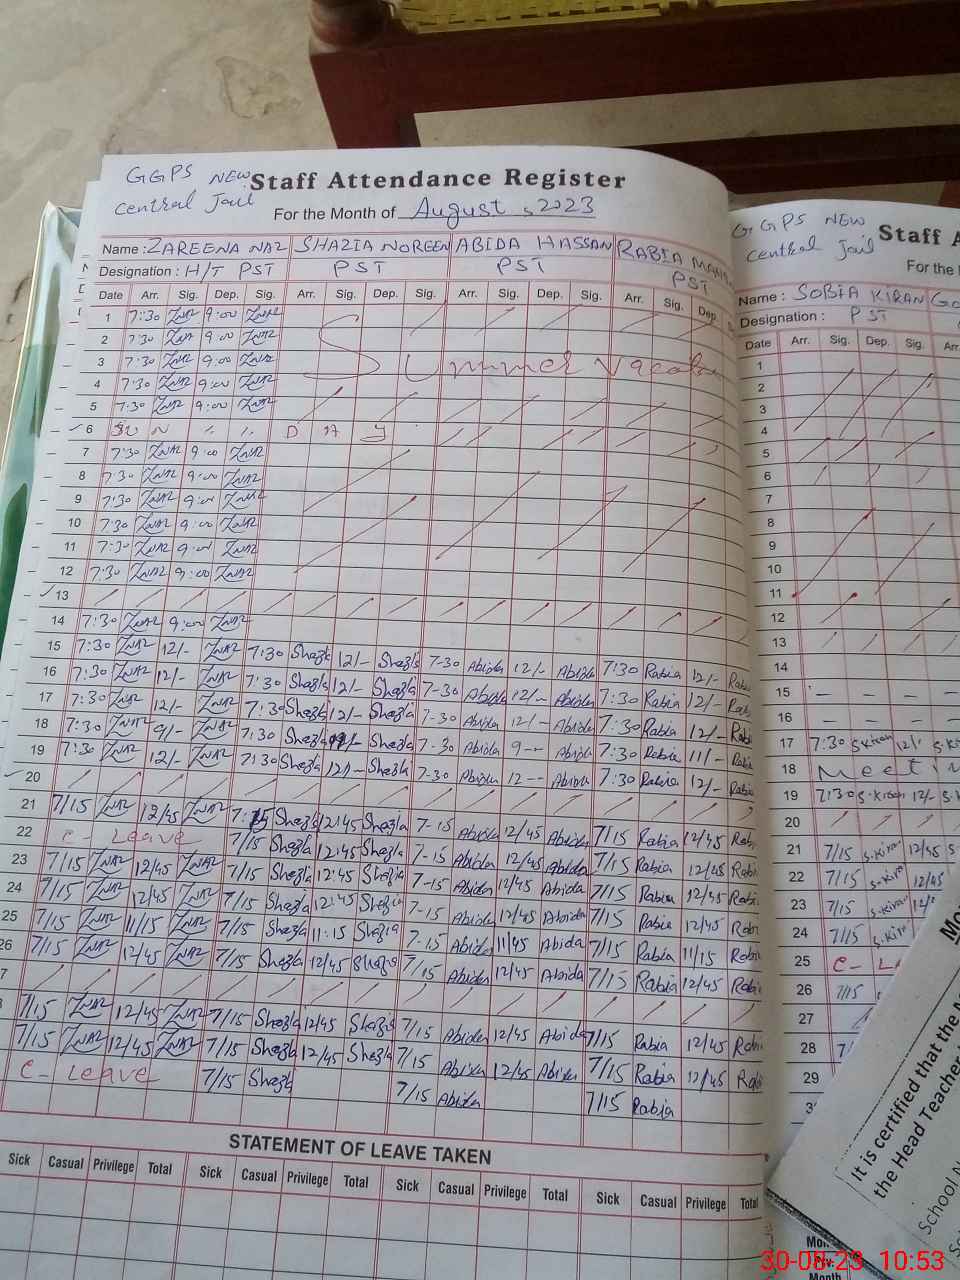 GGPS NEW
Central Jail
Staff Attendance Register
For the Month of August, 2023
Name : ZAREENA NAZ SHAZIA NOREEN ABIDA HASSAN RABIA
Designation : H/T PST PST PST PST
Date Arr. Sig. Dep. Sig. Arr. Sig. Dep. Sig. Arr. Sig. Dep. Sig. Arr. Sig. Dep.
1 7:30 ZNAZ 9:00 ZNAZ
2 7:30 ZNAZ 9:00 ZNAZ
3 7:30 ZNAZ 9:00 ZNAZ Summer
4 7:30 ZNAZ 9:00 ZNAZ
5 7:30 ZNAZ 9:00 ZNAZ
6 SUN DAY
7 7:30 ZNAZ 9:00 ZNAZ
8 7:30 ZNAZ 9:00 ZNAZ
9 7:30 ZNAZ 9:00 ZNAZ
10 7:30 ZNAZ 9:00 ZNAZ
11 7:30 ZNAZ 9:00 ZNAZ
12 7:30 ZNAZ 9:00 ZNAZ
13
14 7:30 ZNAZ 9:00 ZNAZ
15 7:30 ZNAZ 12/- ZNAZ 7:30 Shazia 12/- Shazia 7-30 Abida 12/- Abida 7:30 Rabia 12/-
16 7:30 ZNAZ 12/- ZNAZ 7:30 Shazia 12/- Shazia 7-30 Abida 12/- Abida 7:30 Rabia 12/-
17 7:30 ZNAZ 12/- ZNAZ 7:30 Shazia 12/- Shazia 7-30 Abida 12/- Abida 7:30 Rabia 12/-
18 7:30 ZNAZ 9/- ZNAZ 7:30 Shazia Shazia 7-30 Abida 9-- Abida 7:30 Rabia 11/-
19 7:30 ZNAZ 12/- ZNAZ 7:30 Shazia 12/- Shazia 7-30 Abida 12-- Abida 7:30 Rabia 12/-
20
21 7/15 ZNAZ 12/45 ZNAZ 7:15 Shazia 12:45 Shazia 7-15 Abida 12/45 Abida 7/15 Rabia 12/45
22 C- Leave 7/15 Shazia 12:45 Shazia 7-15 Abida 12/45 Abida 7/15 Rabia 12/45
23 7/15 ZNAZ 12/45 ZNAZ 7/15 Shazia 12:45 Shazia 7-15 Abida 12/45 Abida 7/15 Rabia 12/45
24 7/15 ZNAZ 12/45 ZNAZ 7/15 Shazia 12:45 Shazia 7-15 Abida 12/45 Abida 7/15 Rabia 12/45
25 7/15 ZNAZ 11/15 ZNAZ 7/15 Shazia 11:15 Shazia 7-15 Abida 11/45 Abida 7/15 Rabia 11/15
26 7/15 ZNAZ 12/45 ZNAZ 7/15 Shazia 12/45 Shazia 7/15 Abida 12/45 Abida 7/15 Rabia 12/45
7/15 ZNAZ 12/45 ZNAZ 7/15 Shazia 12/45 Shazia 7/15 Abida 12/45 Abida 7/15 Rabia 12/45
7/15 ZNAZ 12/45 ZNAZ 7/15 Shazia 12/45 Shazia 7/15 Abida 12/45 Abida 7/15 Rabia 12/45
C- Leave 7/15 Shazia 7/15 Abida 7/15 Rabia
STATEMENT OF LEAVE TAKEN
Sick Casual Privilege Total Sick Casual Privilege Total Sick Casual Privilege Total Sick Casual Privilege Total
GGPS NEW
Central Jail
Staff
For the
Name : SOBIA KIRAN
Designation : PST
Date Arr. Sig. Dep. Sig. Arr.
1
2
3
4
5
6
7
8
9
10
11
12
13
14
15 - - -
16 - - -
17 7:30 S.Kiran 12/-
18 Meet
19 7:30 S.Kiran 12/-
20
21 7/15 S.Kiran 12/45
22 7/15 S.Kiran 12/45
23 7/15 S.Kiran
24 7/15 S.Kiran
25 C-
26 7/15
27
28
29
It is certified that the
the Head Teacher
School
Month
30-08-23 10:53